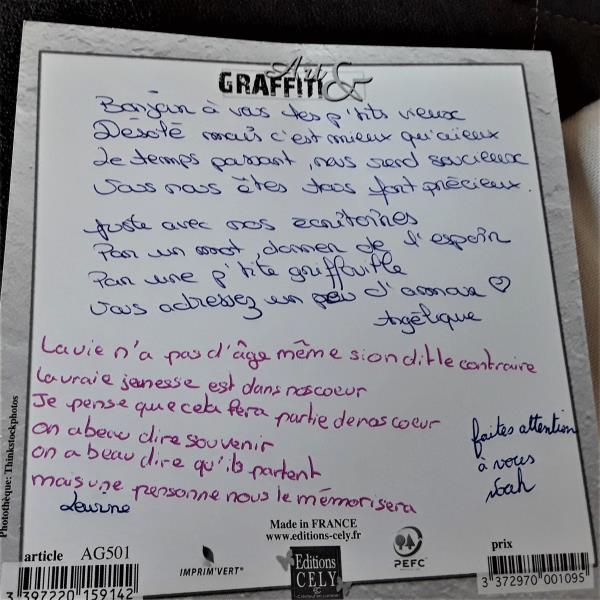 Art &
GRAFFITI
Bonjour à vous les p'tits vieux
Désolé mais c'est mieux qu'aïeux
Le temps passant, nous rend soucieux
Vous nous êtes tous fort précieux.
Juste avec nos écritoires
Par un mot donner de l'espoir
Par une p'tite griffouille
Vous adressez un peu d'amour ♡
Angélique
La vie n'a pas d'âge même si on dit le contraire
La vraie jenesse est dans nos coeur
Je pense que cela fera partie de nos coeur
on a beau dire souvenir
on a beau dire qu'ils partent
mais une personne nous le mémorisera
faites attention
à vous
Noah
Photothèque: Thinkstockphotos
Made in FRANCE
www.editions-cely.fr
article AG501
IMPRIM'VERT®
Editions
CELY
PEFC
prix
3 397220 159142
3 372970 001095